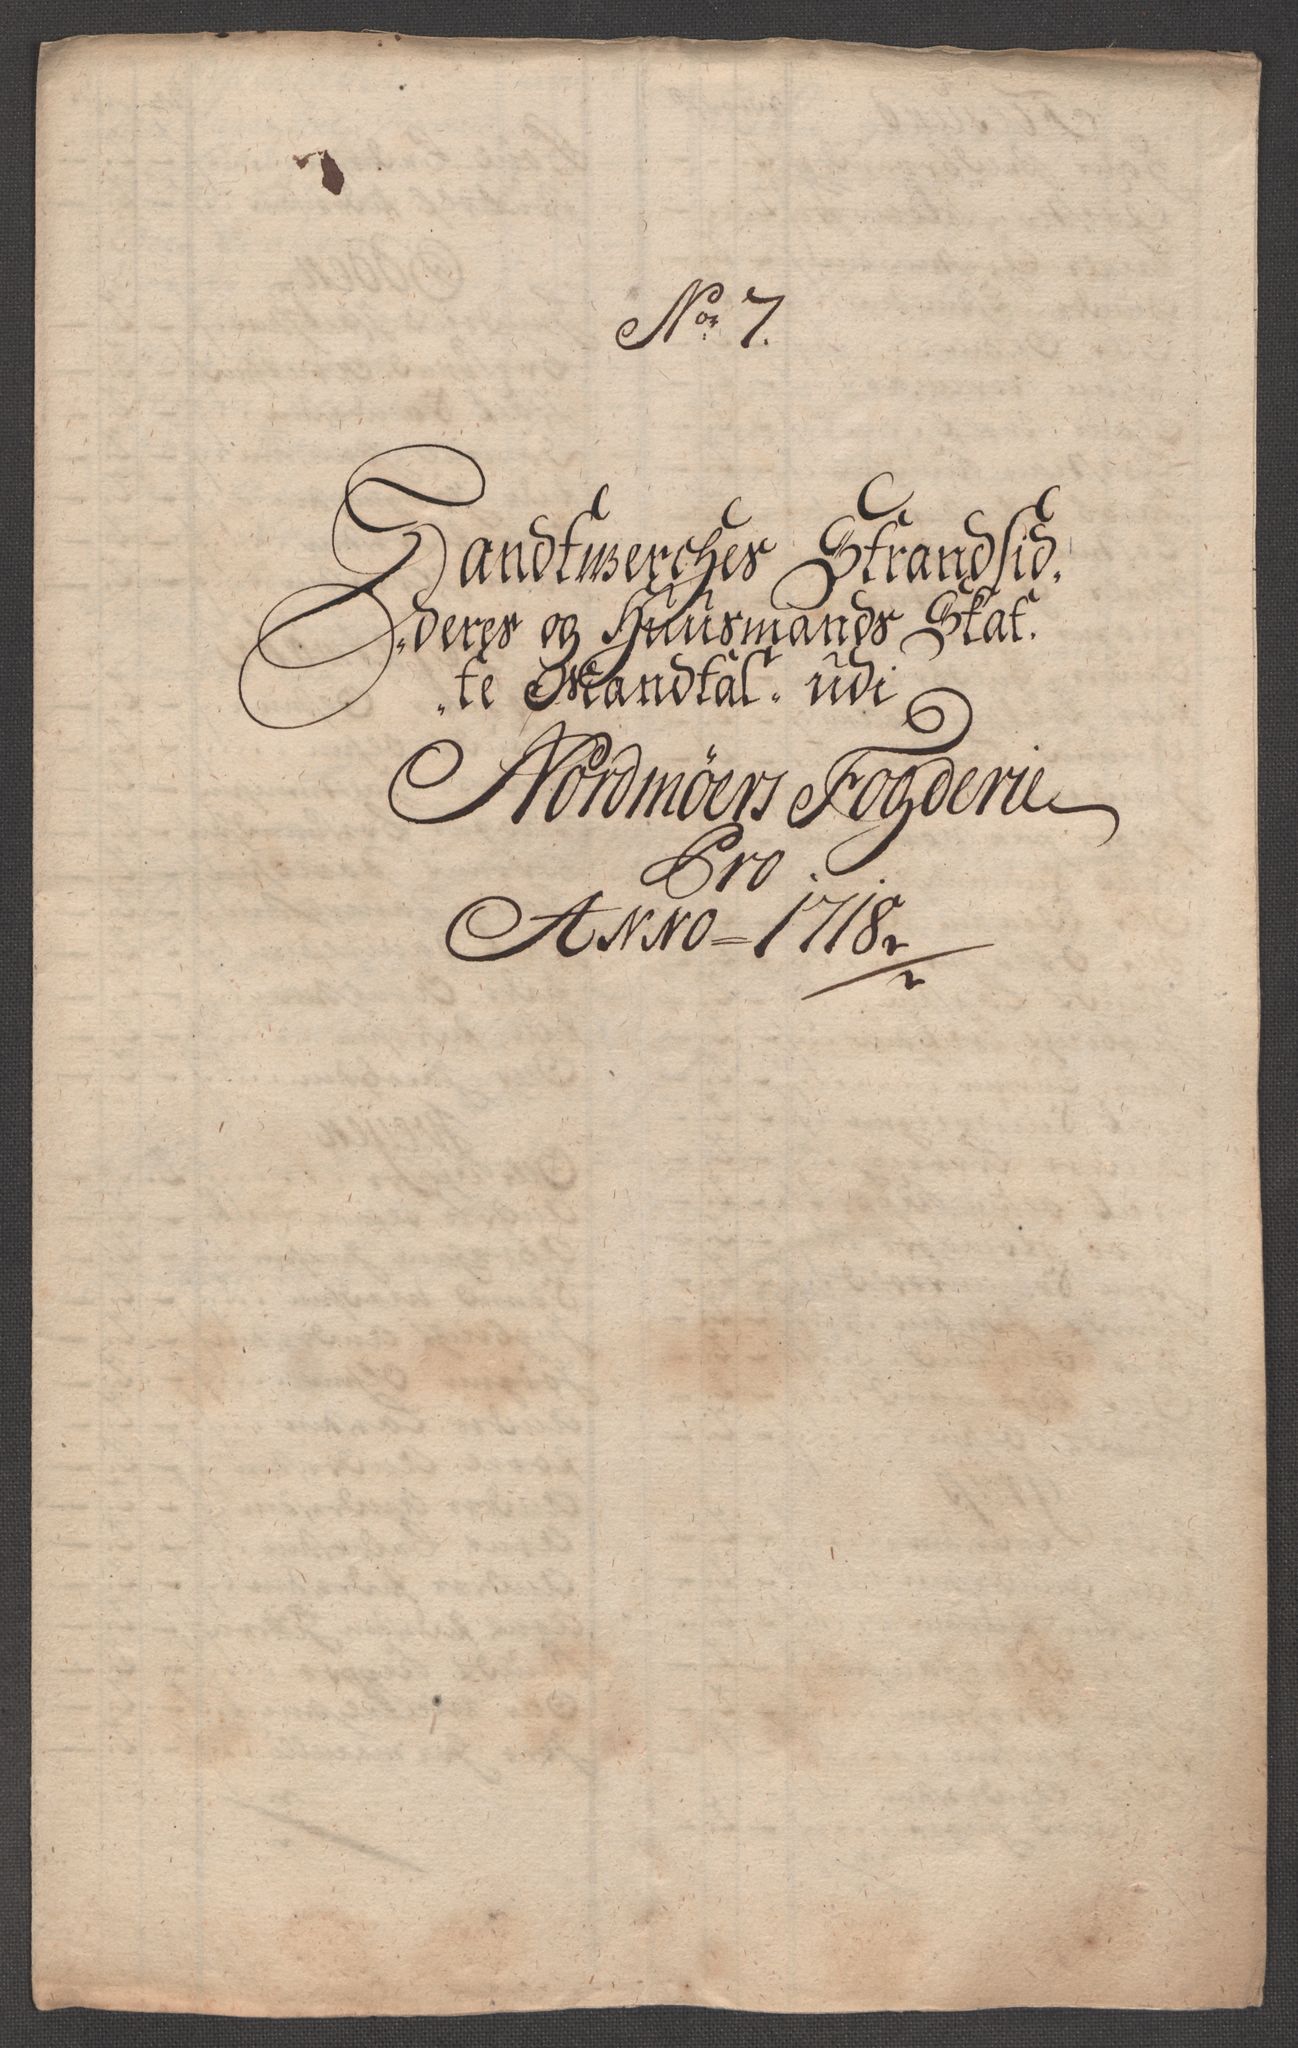 No. 7.
Handtwerches Strandsid-
deres og Huusmands Skat-
te Mandtal udi
Nordmöers Fogderie
Pro
Anno = 1718